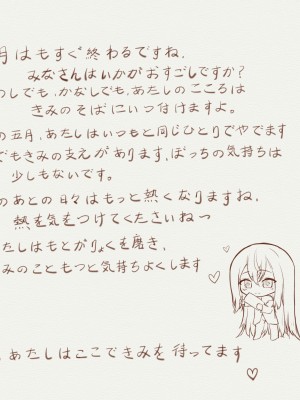 月はもすぐ終わるですね.
みなさんはいかがおすごしですか?
のしでも、かなしでも、あたしのこころは
きみのそばにいつ付けますよ。
の五月、あたしはいつもと同じひとりでやでます
でもきみの支えがあります,ぼっちの気持ちは
少しもないです。
のあとの日々はもっと熱くなりますね,
熱を気をつけてくたさいね~
たしはもとがりょくを磨き,
みのこともつと気持ちよくします
、あたしはここできみを待ってます